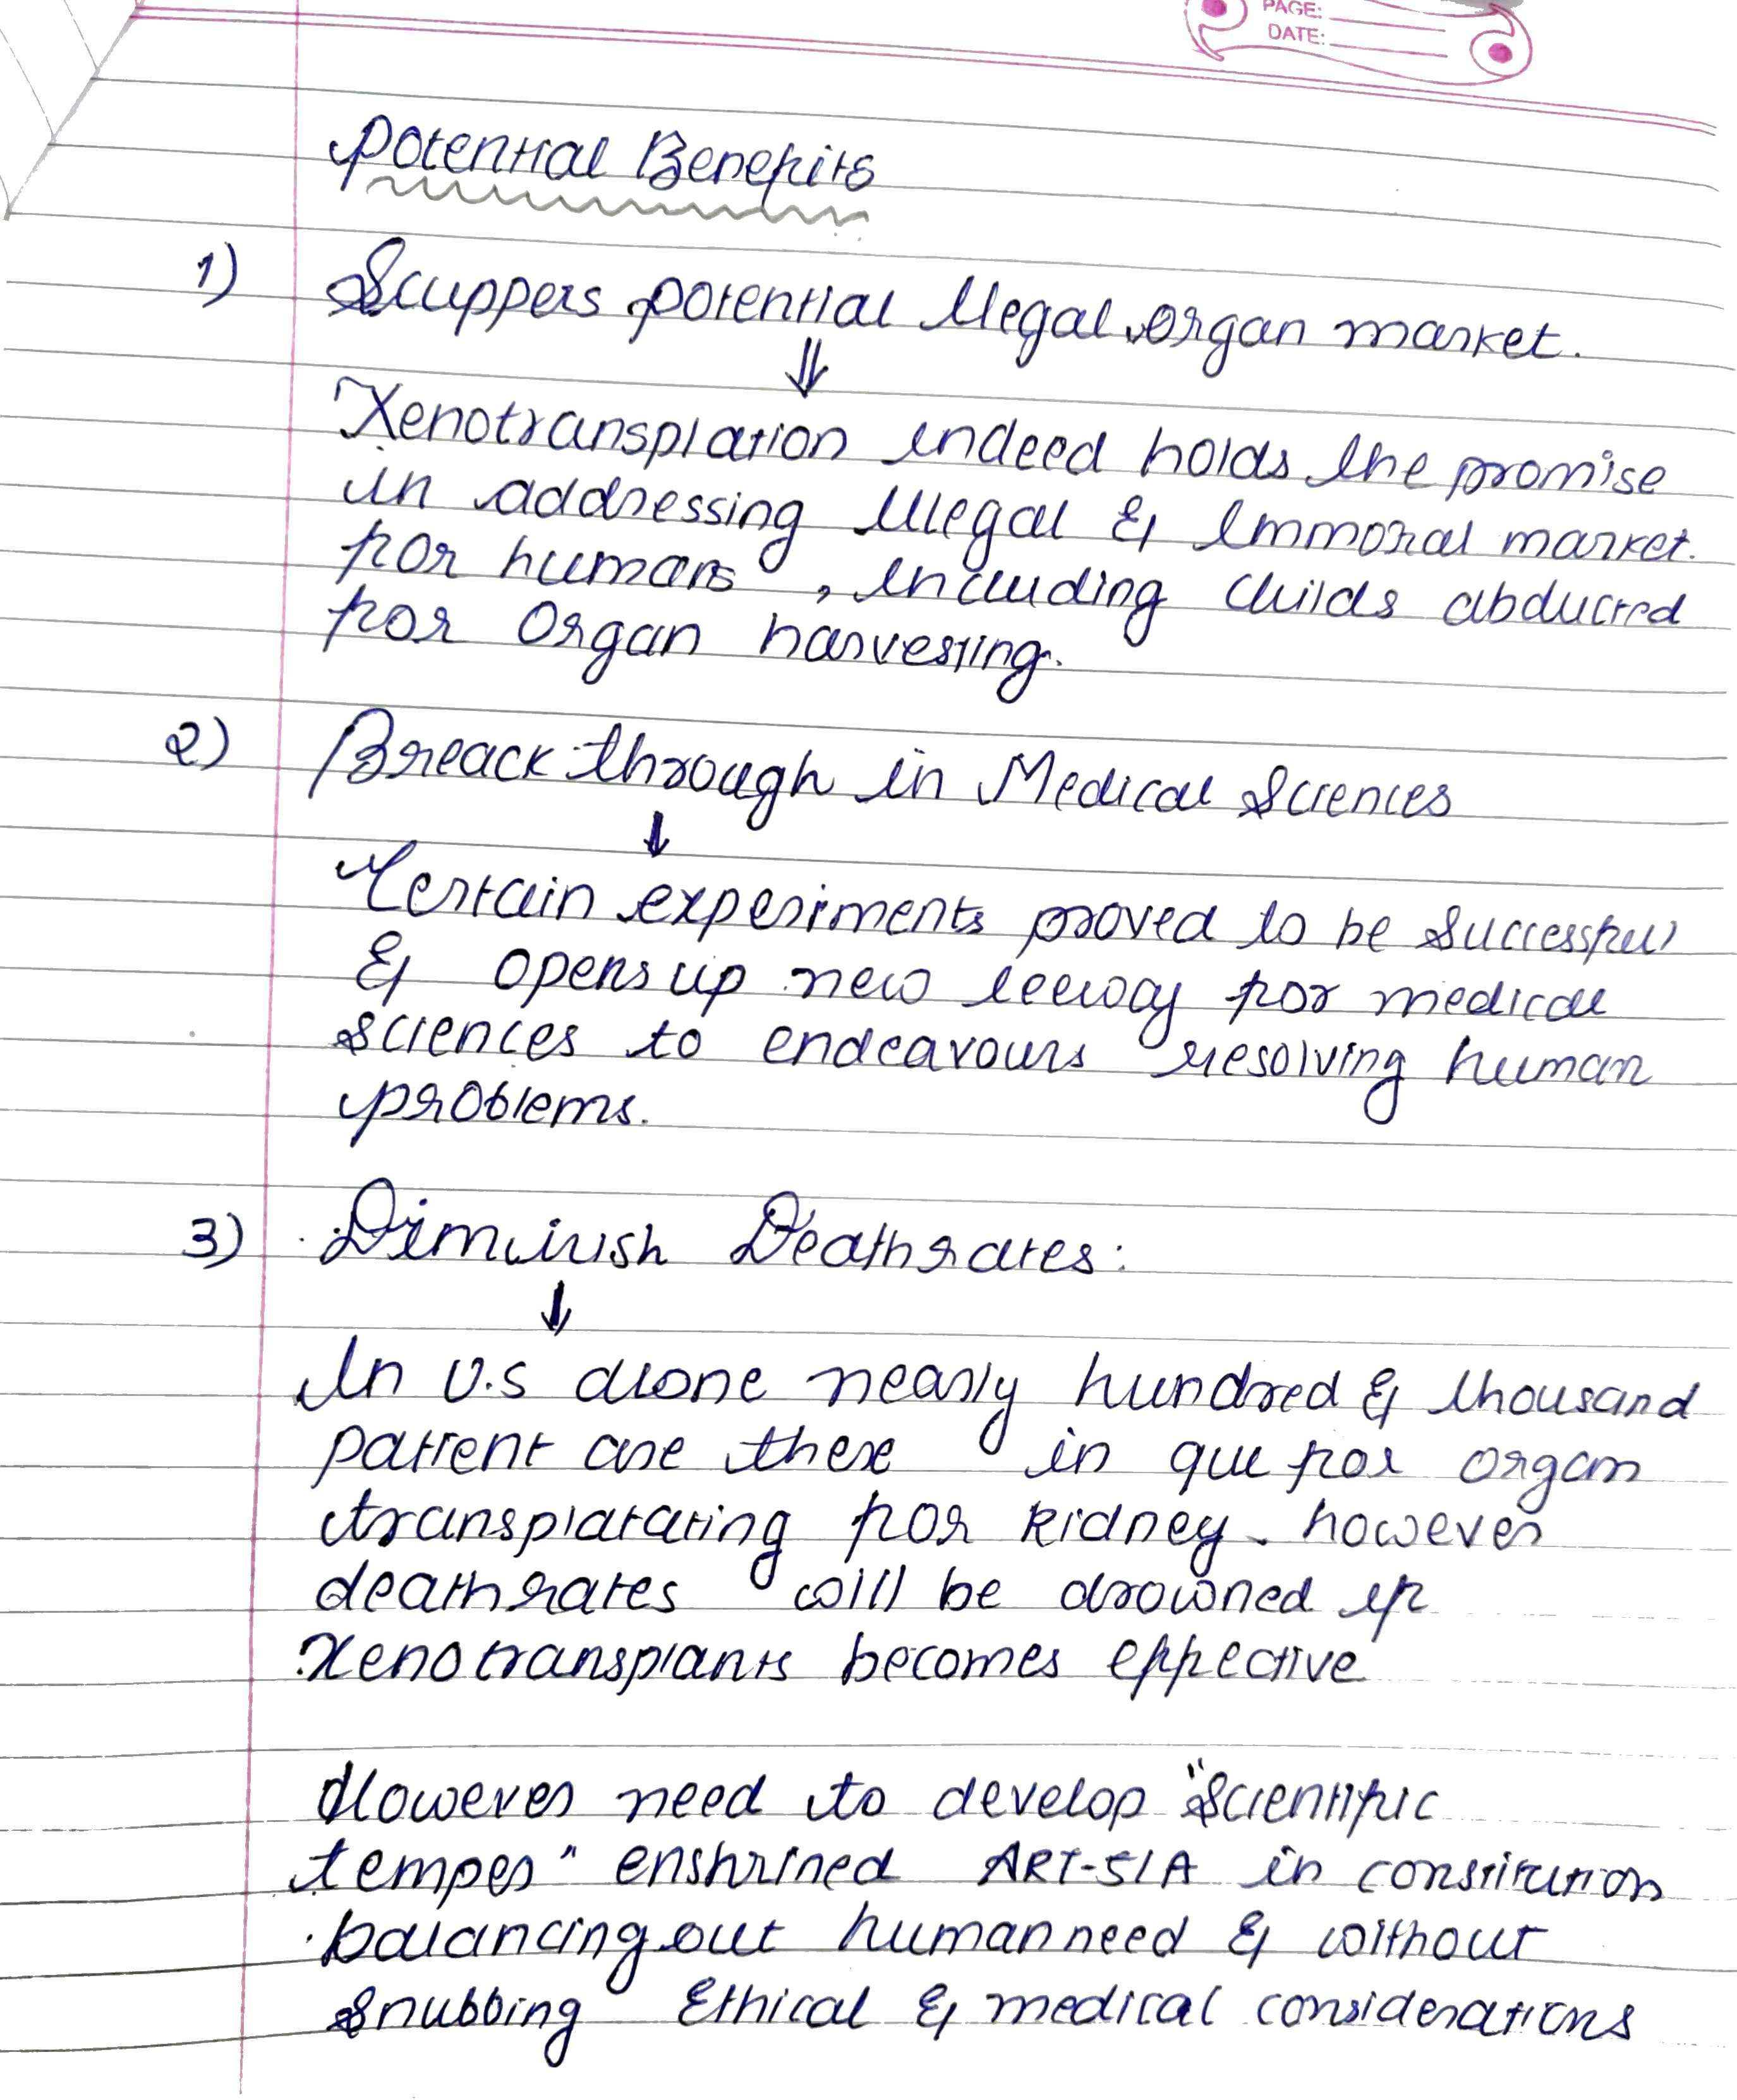 PAGE:
DATE:
Potential Benefits
1) Scuppers potential Illegal organ market.
⇓
Xenotransplation indeed holds the promise
in addressing Illegal & Immoral market.
for humans, including childs abducted
for organ harvesting.
2) Breack through in Medical Sciences
↓
Certain experiments proved to be successful
& opens up new leeway for medical
sciences to endeavours resolving human
problems.
3) Diminish Deathrates:
↓
In U.S alone nearly hundred & thousand
patient are there in que for organ
transplatating for kidney. however
deathrates will be drowned if
Xenotransplants becomes effective
However need to develop "Scientific
temper" enshrined ART-51A in constitution
balancing out human need & without
snubbing Ethical & medical considerations